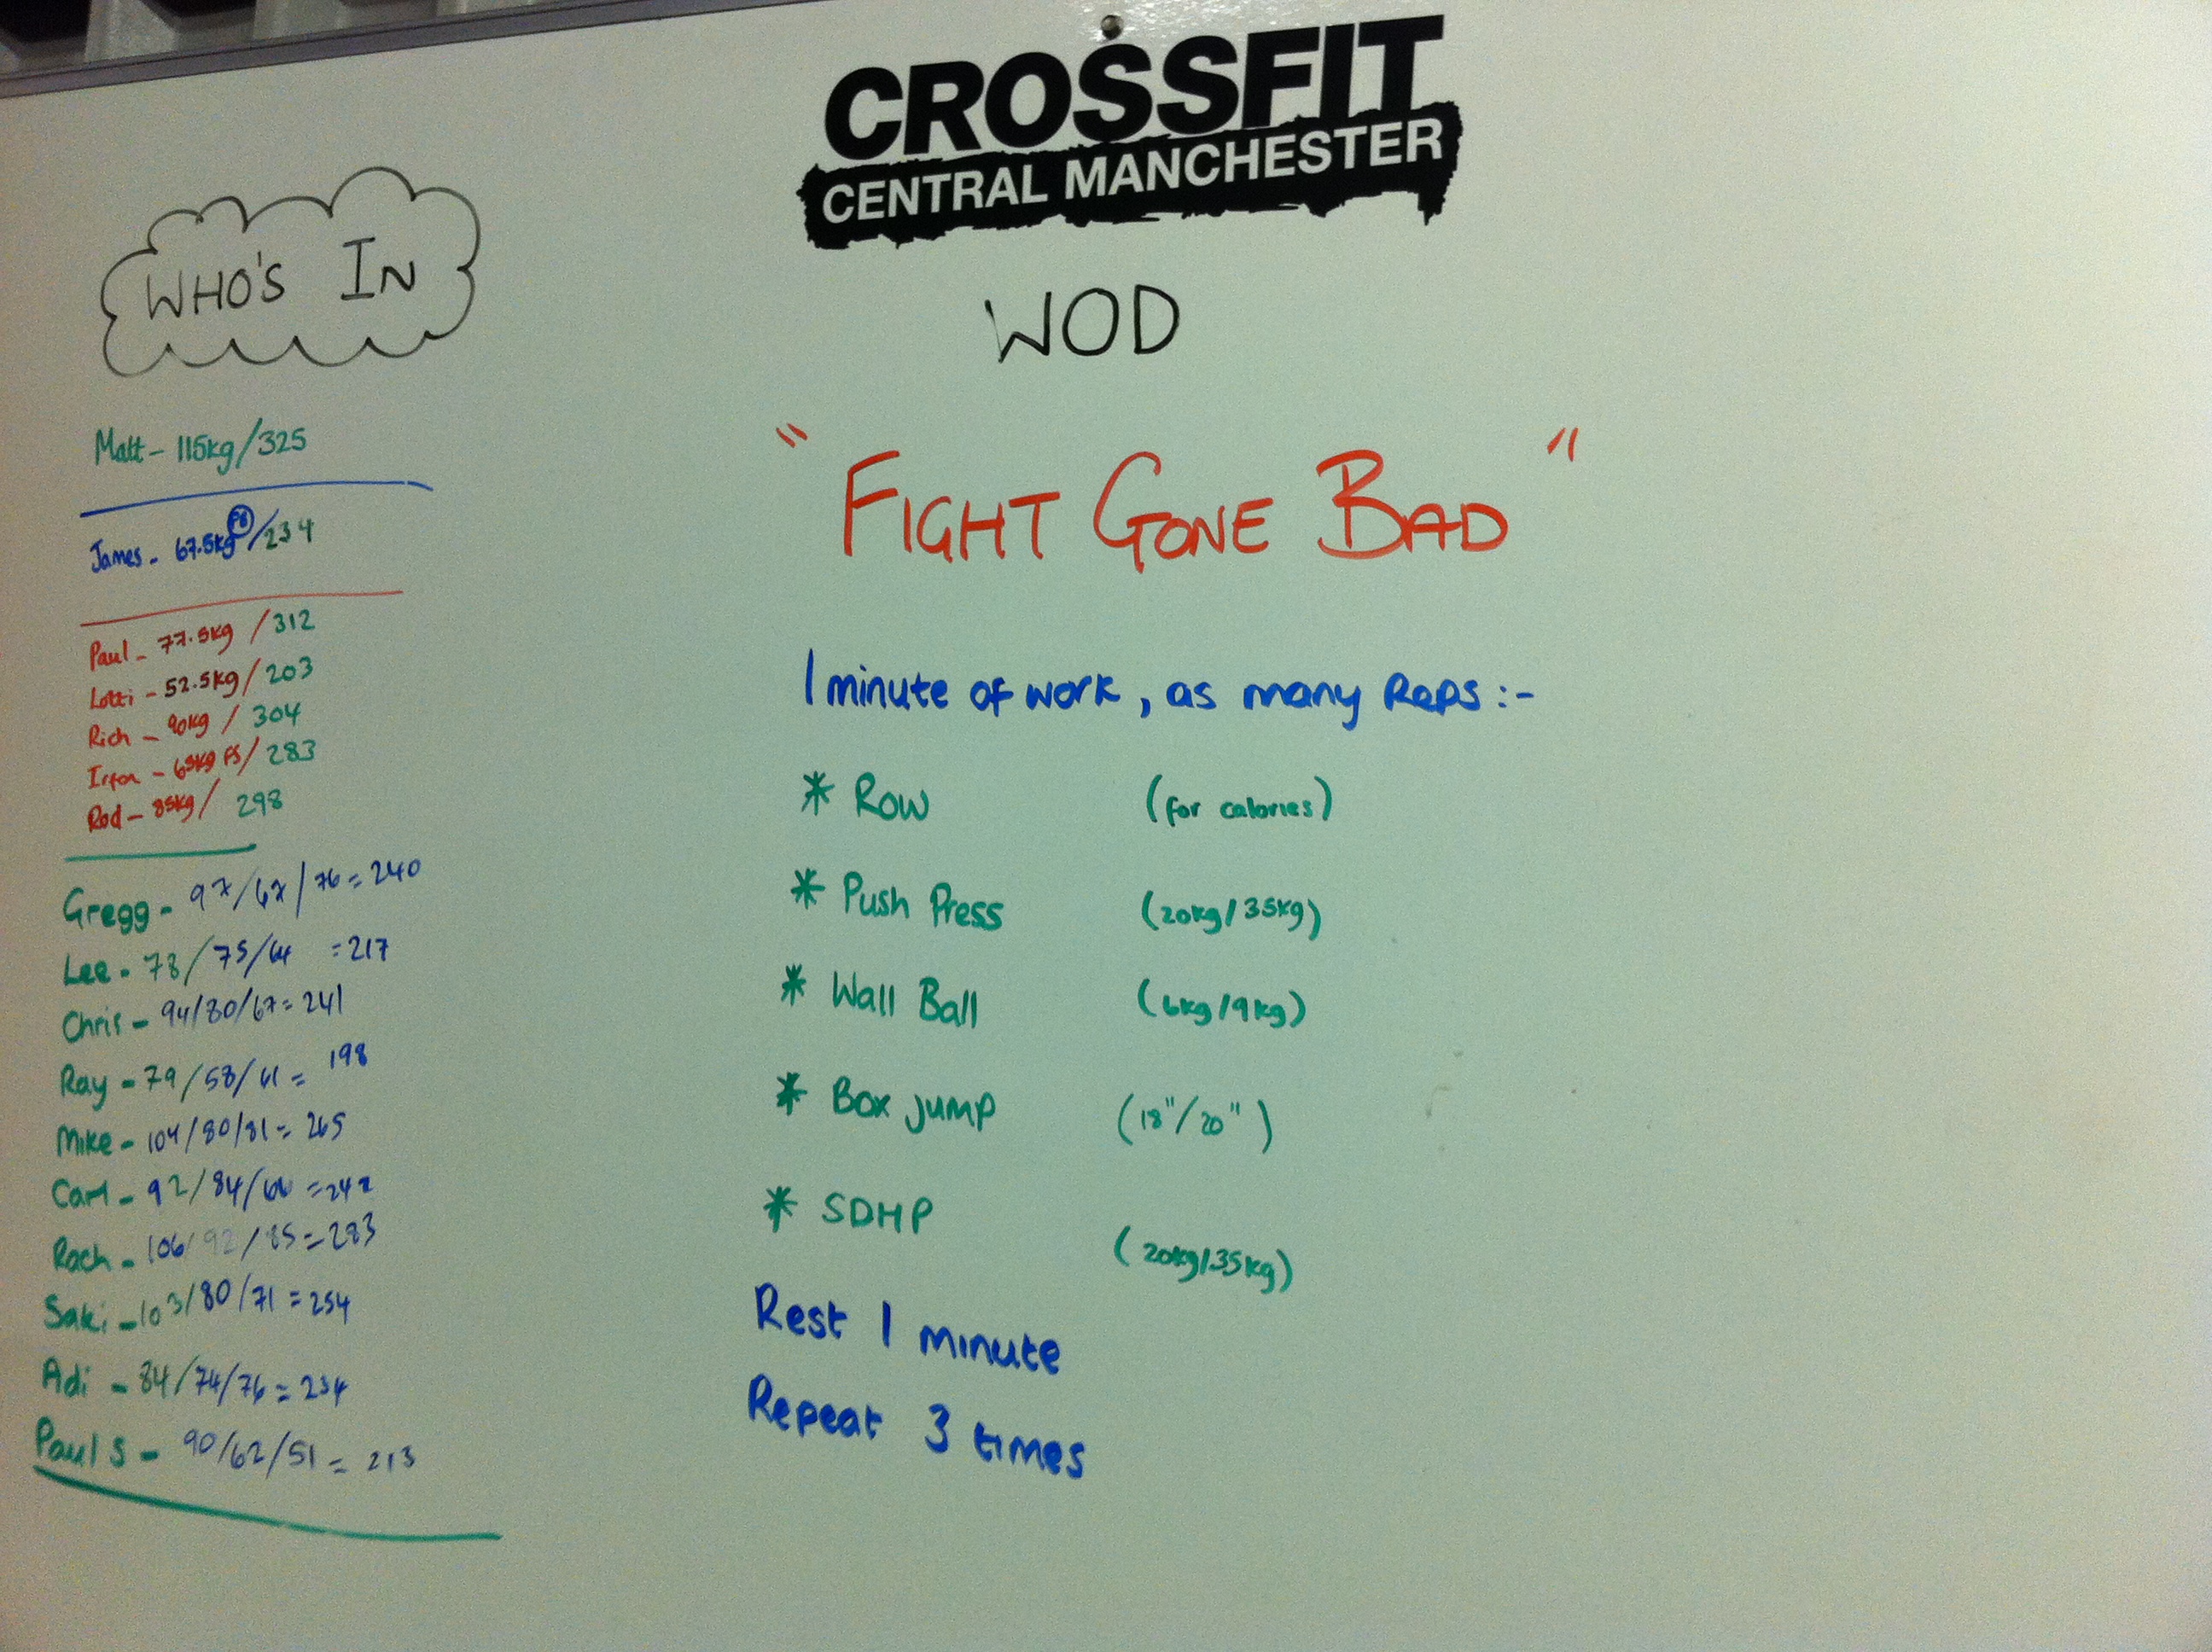 CROSSFIT
CENTRAL MANCHESTER
WHO'S IN
Matt - 115kg/325
James - 67.5kg PB/234
Paul - 77.5kg / 312
Lotti - 52.5kg/ 203
Rich - 90kg / 304
Irfon - 65kg FS/ 283
Rod - 85kg/ 298
Gregg - 97/67/76 = 240
Lee - 78/75/64 = 217
Chris - 94/80/67 = 241
Ray - 79/58/61 = 198
Mike - 104/80/81 = 265
Carl - 92/84/66 = 242
Rach - 106/92/85 = 283
Saki - 103/80/71 = 254
Adi - 84/74/76 = 234
Paul S - 90/62/51 = 213
WOD
"FIGHT GONE BAD"
1 minute of work, as many Reps :-
* Row (for calories)
* Push Press (20kg/35kg)
* Wall Ball (6kg/9kg)
* Box jump (18"/20")
* SDHP (20kg/35kg)
Rest 1 minute
Repeat 3 times